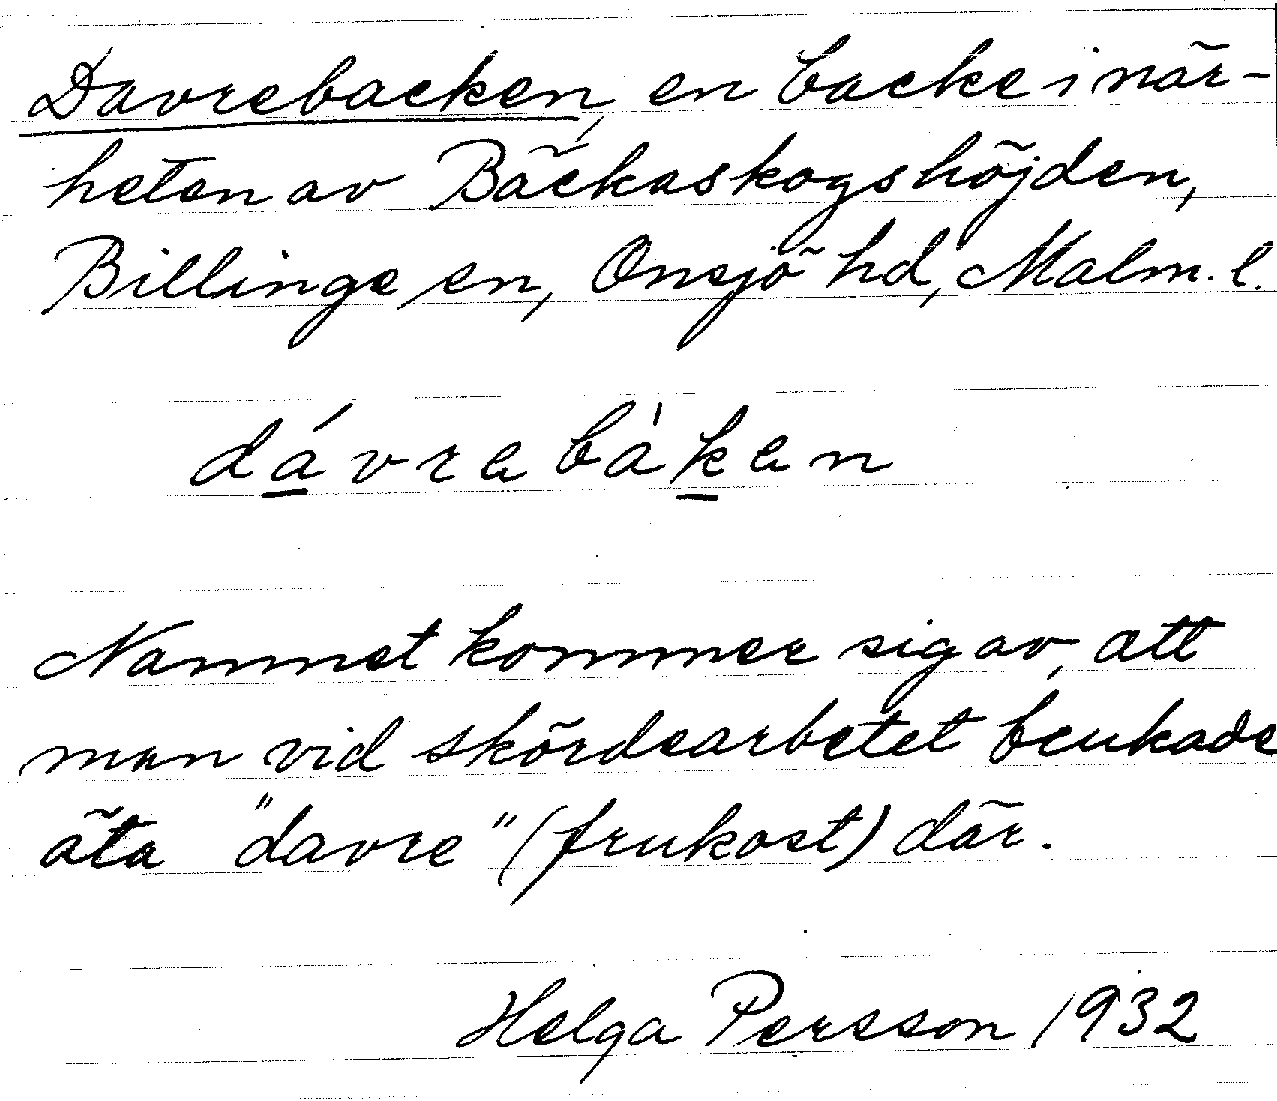 Davrebacken, en backe i när-
heten av Bäckaskogshöjden,
Billinge sn, Onsjö hd, Malm. l.
dávrabàken
Namnet kommer sig av, att
man vid skördearbetet brukade
äta "davre" (frukost) där.
Helga Persson 1932